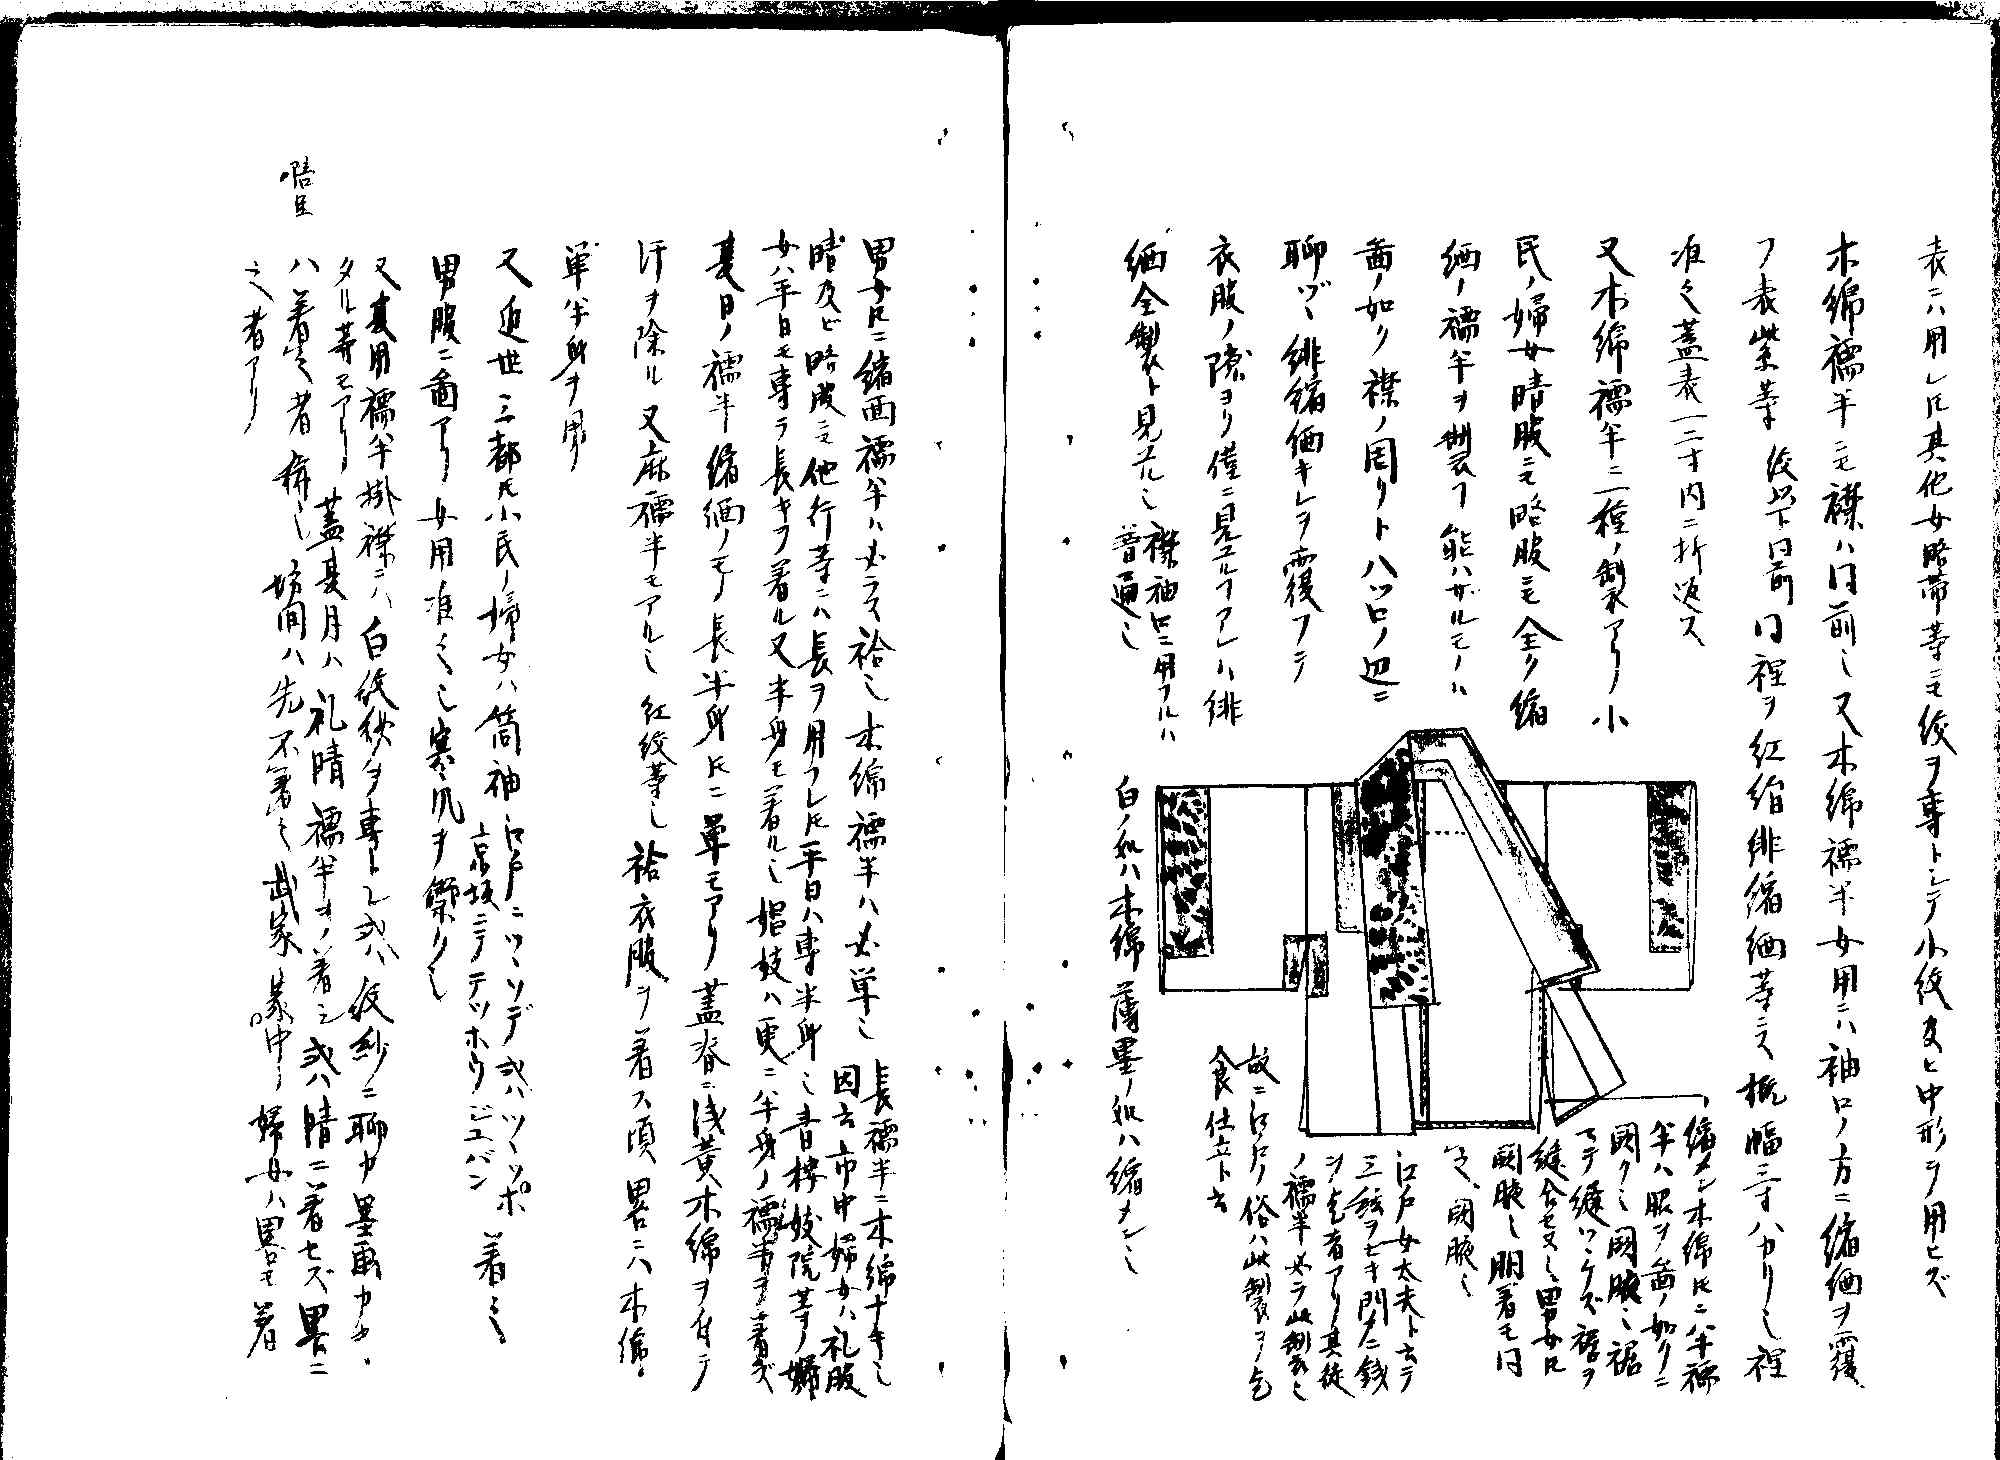 表ニハ用レ𪜈其他女略帯等ニモ絞ヲ専トシテ小紋及ヒ中形ヲ用ヒズ
木綿襦半ニモ襟ハ同前也又木綿襦半女用ニハ袖口ノ方ニ縮緬ヲ覆
フ表紫等絞以下同前同裡ヲ紅絹緋縮緬等ニス概幅三寸バカリ也裡
准之蓋表一二寸内ニ折返ス
又木綿襦半ニ一種ノ製アリ小
民ノ婦女晴服ニモ略服ニモ全ク縮
緬ノ襦半ヲ製スル能ハザルモノハ
図ノ如ク襟ノ周リト八ツ口ノ辺ニ
聊ヅヽ緋縮緬キレヲ覆フテ
衣服ノ隙ヨリ僅ニ見ユル了アレハ緋
緬全製ト見ユル也
襟袖口ニ用フルハ
普通也
白ノ処ハ木綿薄墨ノ処ハ縮メン也
縮メン木綿𪜈ニ半襦
半ハ服ヲ図ノ如クニ
闕ク也闕腋ニ裾
マテ縫ツケズ裾ヲ
縫合セヌ也男女𪜈
闕腋也胴着モ同
之闕腋也
江戸女太夫ト云テ
三絃ヲヒキ門々ニ銭
ヲ乞者アリ其徒
ノ襦半必ラ此製也
故ニ江戸ノ俗ハ此製ヲ乞
食仕立ト云
男女𪜈ニ縮緬襦半ハ必ラス袷也木綿襦半ハ必単也
長襦半ニ木綿ナキ也
因云市中婦女ハ礼服
晴及ビ略服ニモ他行等ニハ長ヲ用フレ𪜈平日ハ専半身也青楼妓院等ノ婦
女ハ平日モ専ラ長キヲ着ル又半身モ着ル也娼妓ハ更ニ半身ノ襦半ヲ着ズ
夏日ノ襦半縮緬ノモノ長半身𪜈ニ単モアリ蓋脊ニ浅黄木綿ヲ付テ
汗ヲ除ル又麻襦半モアル也紅絞等也袷衣服ヲ着ス頃略ニハ木綿
単半身ヲ用フ
又近世三都𪜈小民ノ婦女ハ筒袖
江戸ニツヽソデ或ハツヽツポ
京坂ニテテツホウジユバン
着之
男服ニ図アリ女用准之也寒風ヲ禦ク也
又夏用襦半掛襟ニハ白絞紗ヲ専トシ或ハ絞紗ニ聊カ墨画カヽ
タル等モアリ蓋夏月ハ礼晴襦半ヲ着シ或ハ晴ニ着セズ略ニ
ハ着之者稀也坊間ハ先不着之武家幕中ノ婦女ハ略モ着
之者アリ